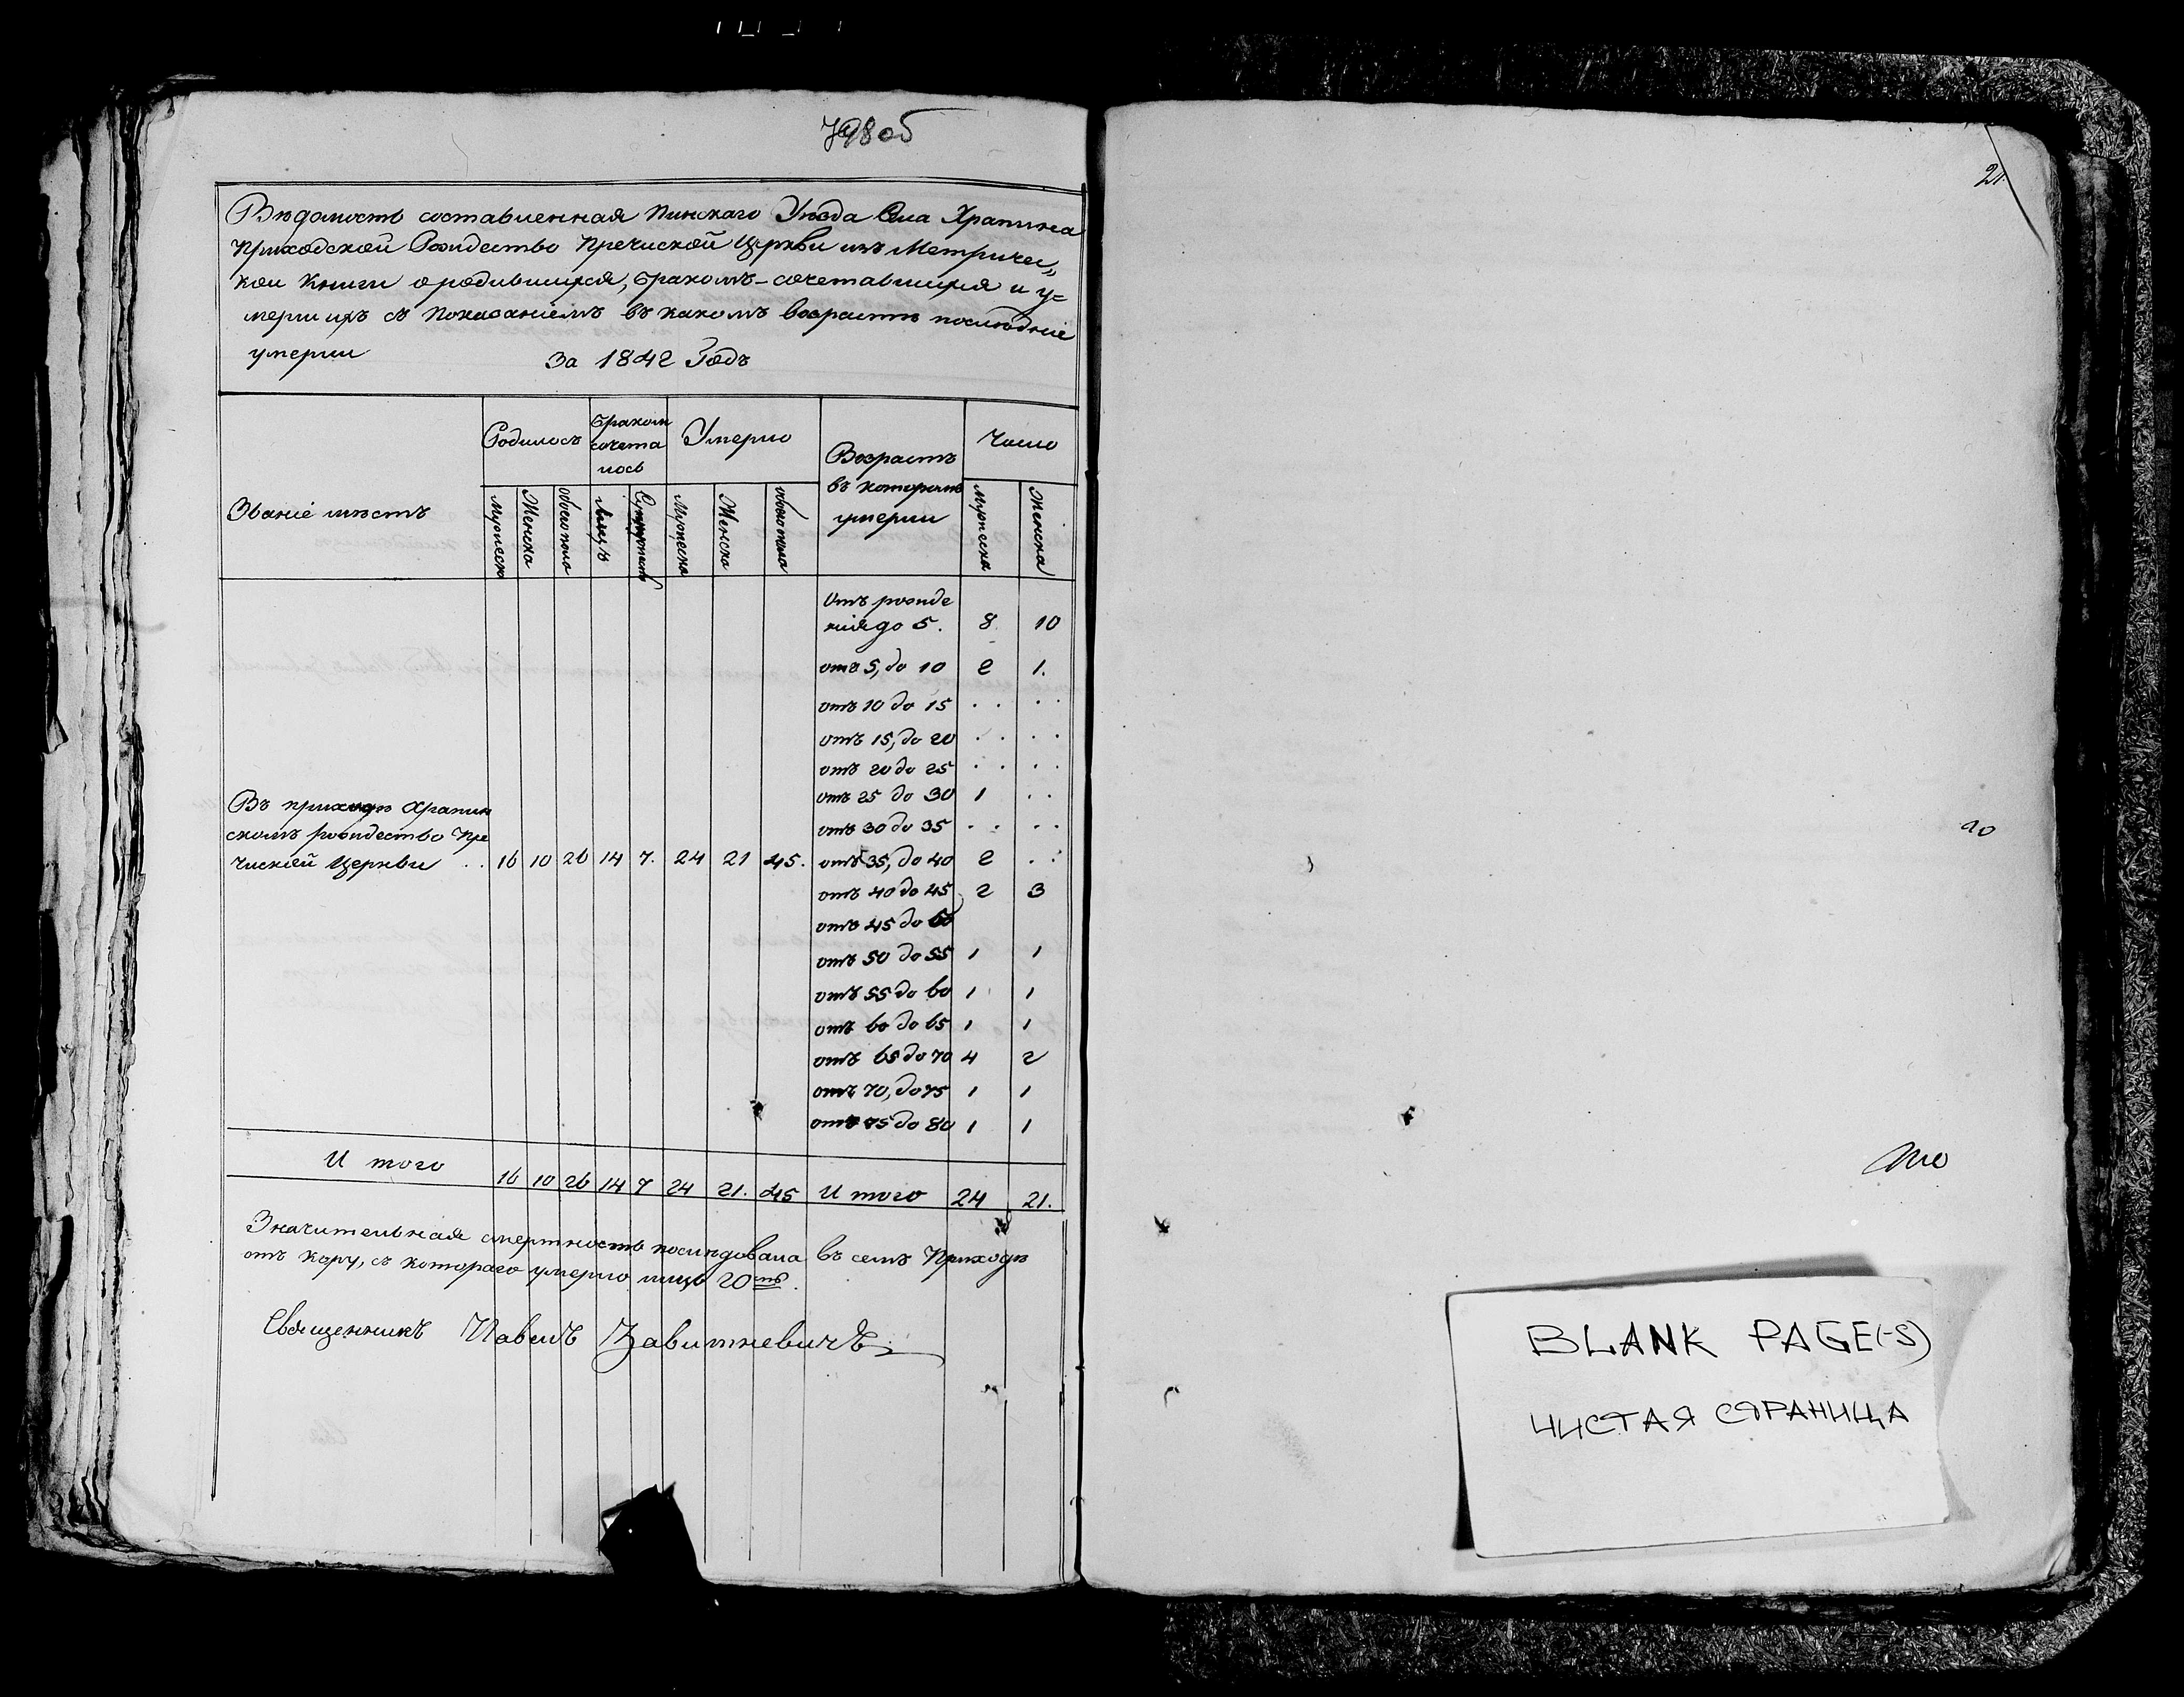 798об
Вѣдомость составленная Пинскаго Уѣзда Села Храпина
Приходской Рождество Пречиской Церкви изъ Метричес„
кои Книги о родившихся, бракомъ-сочетавшихся и у=
мерш ихъ съ Показаніемъ въ какомъ возрастѣ послѣдніе
умерли За 1842 Годъ
Званіе мѣстъ Родилось Бракомъ сочета лось Умерло Возрастъ въ которомъ умерли Число
Мужеска Женска обоего пола лицъ Супружествъ Мужеска Женска обоего пола Мужеска Женска
Отъ рожде
нія до 5. 8 10
отъ 5, до 10 2 1.
отъ 10 до 15 . . . .
отъ 15, до 20 . . . .
отъ 20 до 25 . . . .
отъ 25 до 30 1 . .
отъ 30 до 35 . . . .
Въ приходѣ Храпин
скомъ рождество Пре
чиской Церкви . . 16 10 26 14 7. 24 21 45. отъ 35, до 40 2 . .
отъ 40 до 45 2 3
отъ 45 до 50
отъ 50 до 55 1 1
отъ 55 до 60 1 1
отъ 60 до 65 1 1
отъ 65 до 70 4 2
отъ 70, до 75 1 1
отъ 75 до 80 1 1
И того 16 10 26 14 7 24 21. 45 И того 24 21.
Значительная смертность послѣдовала въ семъ Приходѣ
отъ кору, съ котораго умерло лицъ 20ть.
Священникъ Павелъ Завитневичъ
21.
20
BLANK PAGE(-S)
ЧИСТАЯ СТРАНИЦА